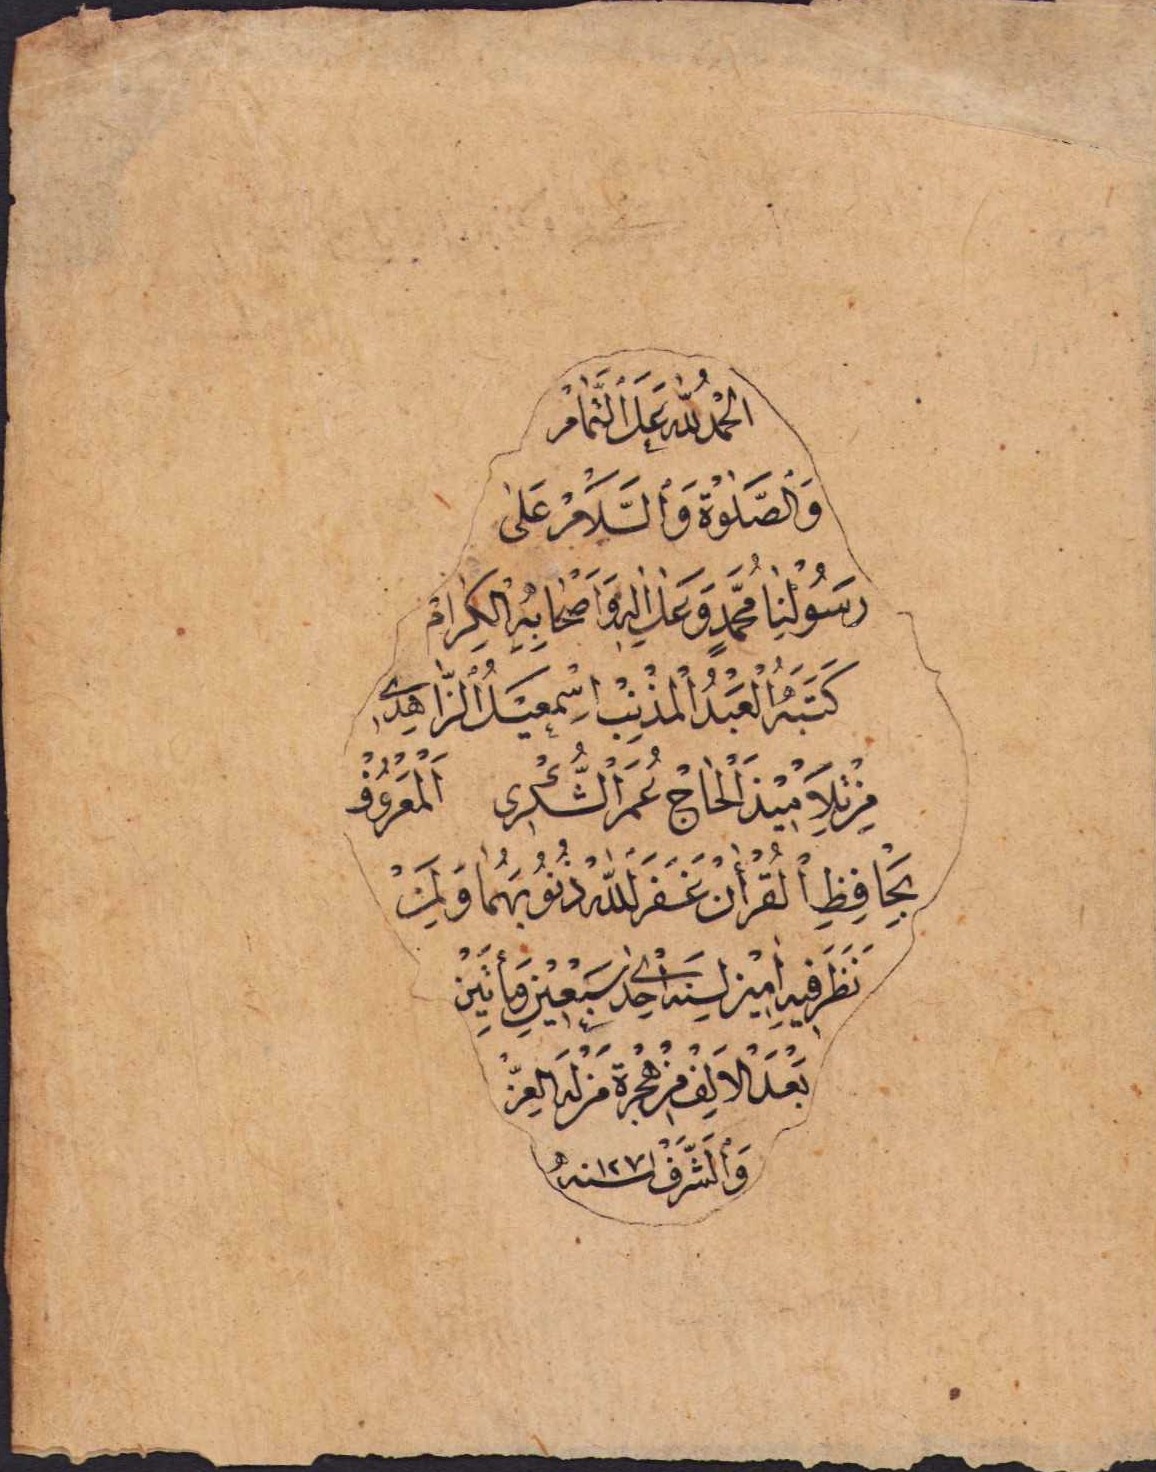 الْحَمْدُ لِلّٰهِ عَلَى الْتَّمَامْ
وَالْصَّلٰوةْ وَالْسَّلَامْ عَلٰى
رَسُوْلِنَا مُحَمَّدٍ وَعَلٰى اٰلِهِ وَاَصْحَابِهِ الْكِرَامْ
كَتَبَهُ الْعَبْدُ الْمُذْنِبْ اِسْمٰعِيْلُ الْزَّاهِدِى
مِنْ تَلَامِيْذِ الْحَاجْ عُمَرَ الْشُّكْرِى الْمَعْرُوْفْ
بِحَافِظِ الْقُرْاٰنْ غَفَرَ اللّٰهُ ذُنُوْبَهُمَا وَلِمَنْ
نَظَرَ فِيْهِ اٰمِيْنْ لِسَنَةِ اِحْدٰى سَبْعِيْنْ وَمِأَتَيْنْ
بَعْدَ الْاَلِفْ مِنْ هِجْرَةْ مَنْ لَهُ الْعِزّْ
وَالْشَّرَفْ سنه ١٢٧١